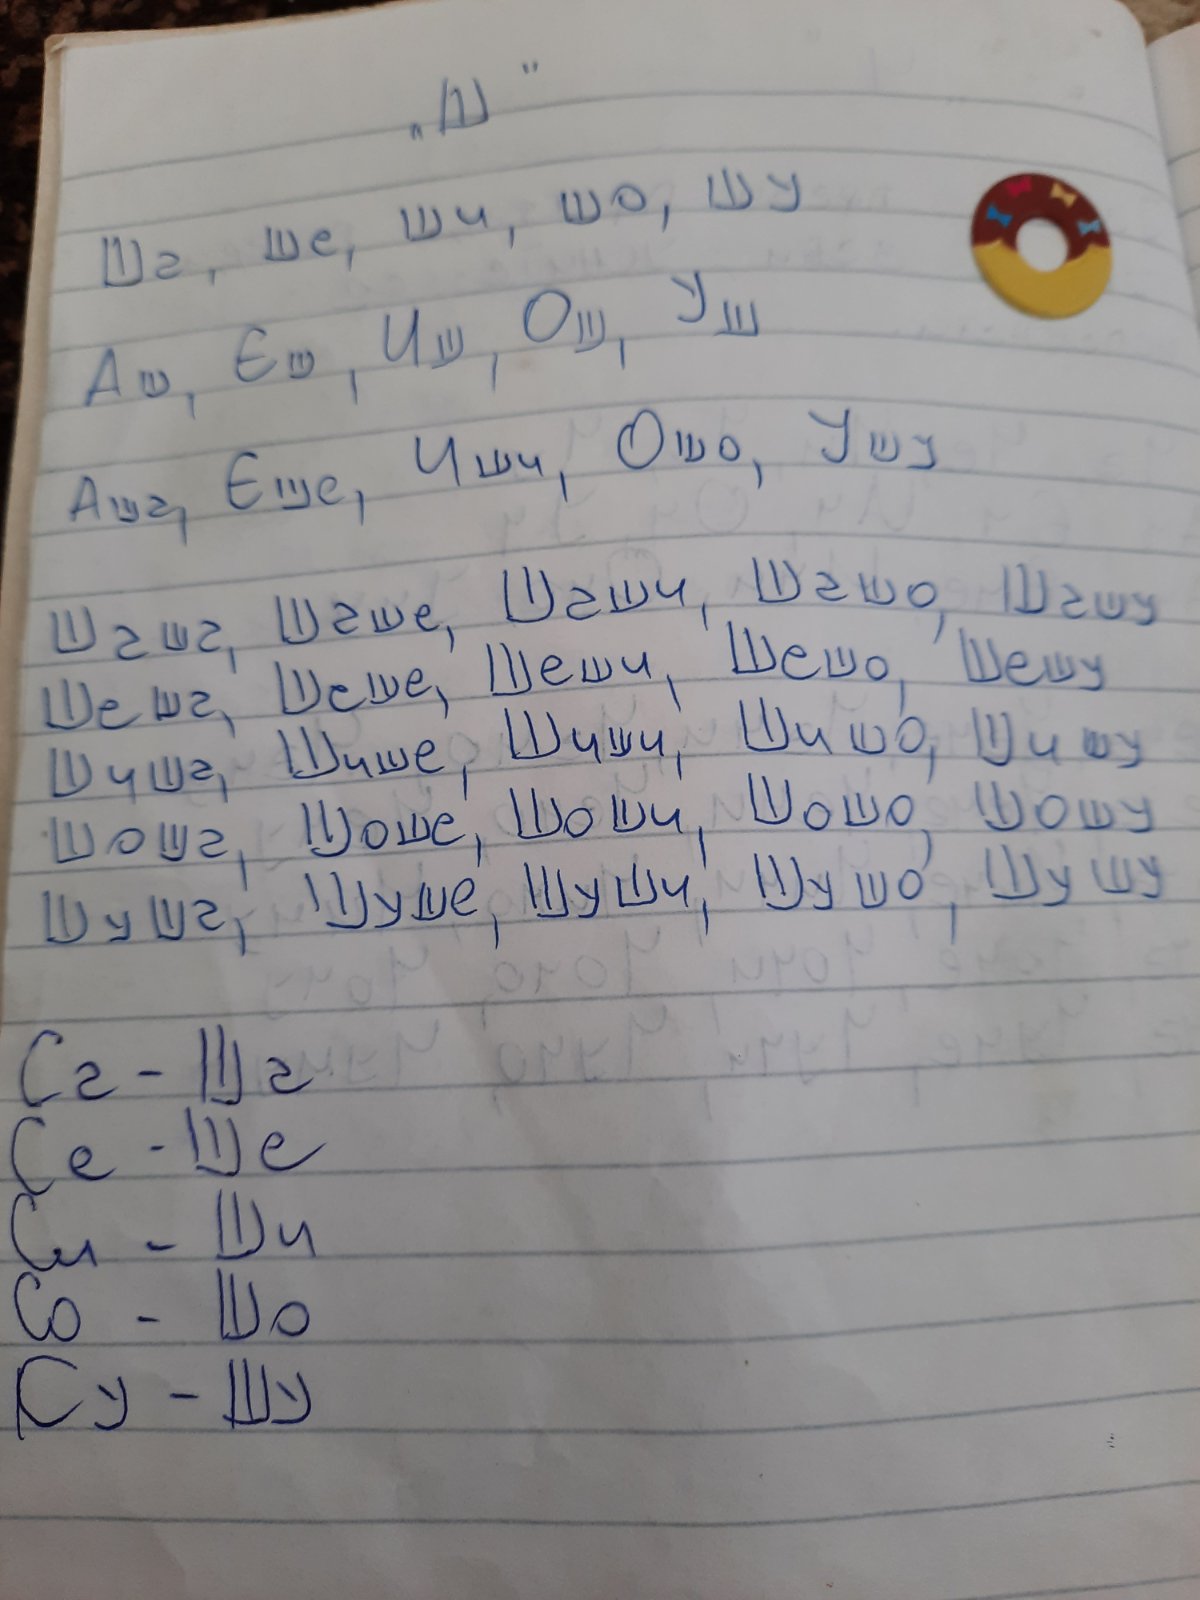 „Ш"
Ша, ше, ши, шо, шу
Аш, Еш, Иш, Ош, Уш
Аша, Еше, Иши, Ошо, Ушу
Шаша, Шаше, Шаши, Шашо, Шашу
Шеша, Шеше, Шеши, Шешо, Шешу
Шиша, Шише, Шиши, Шишо, Шишу
Шоша, Шоше, Шоши, Шошо, Шошу
Шуша, Шуше, Шуши, Шушо, Шушу
Са - Ша
Се - Ше
Си - Ши
Со - Шо
Су - Шу